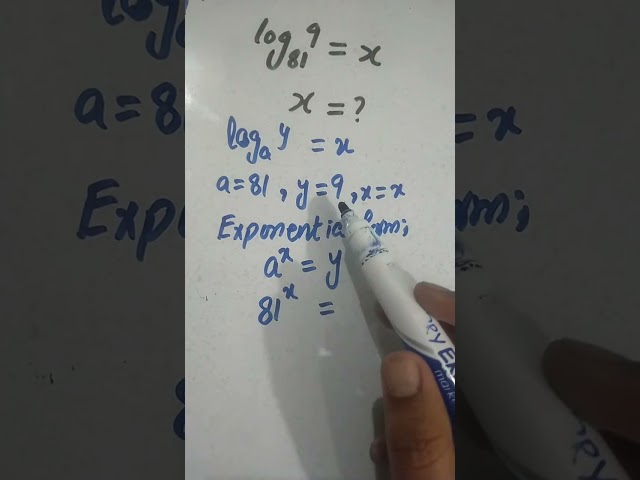 log₈₁ 9 = x
x = ?
logₐ y = x
a = 81 , y = 9 , x = x
Exponential form;
aˣ = y
81ˣ =